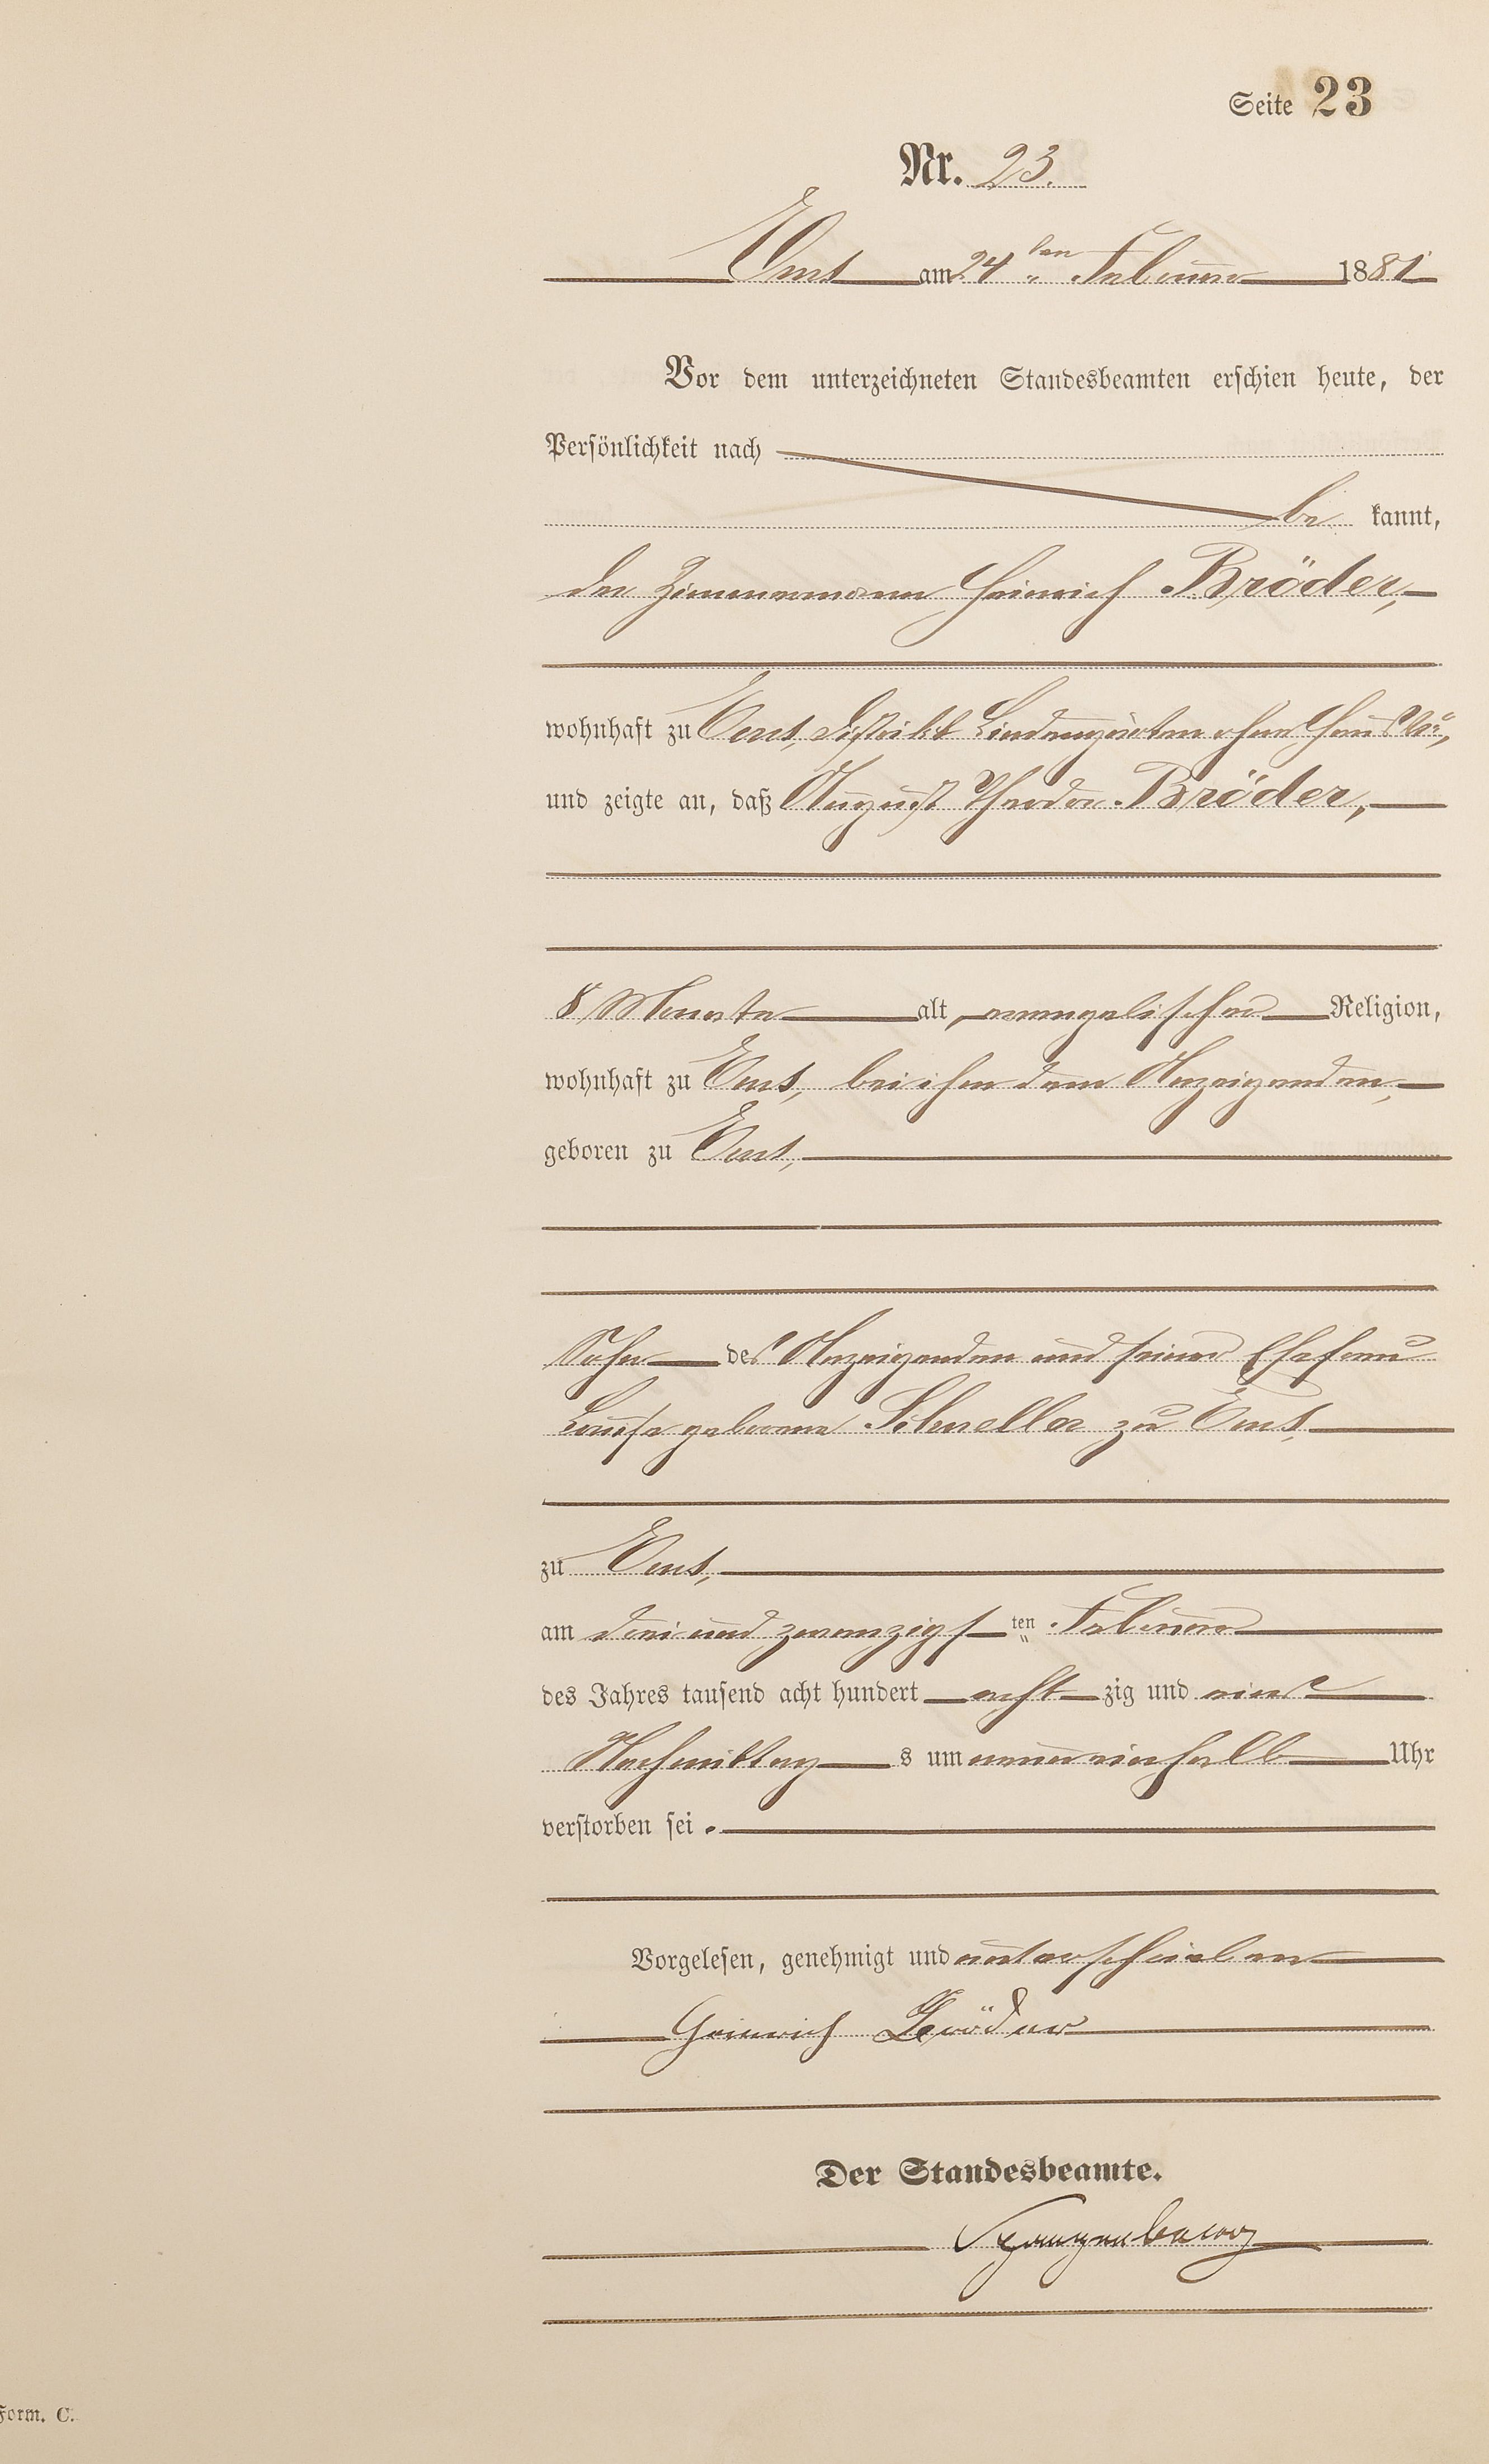 Seite 23
Nr. 23.
Ems am 24ten Februar 1881
Vor dem unterzeichneten Standesbeamten erschien heute, der
Persönlichkeit nach
be kannt,
der Zimmermann Heinrich Bröder,
wohnhaft zu Ems, Distrikt Lindengärten ohne Haus No,
und zeigte an, daß August Theodor Bröder,
8 Monate alt, evangelischer Religion,
wohnhaft zu Ems, bei ihm dem Anzeigenden,
geboren zu Ems,
Sohn des Anzeigenden und seiner Ehefrau
Louise geborene Schneller zu Ems,
zu Ems,
am drei und zwanzigsten Februar
des Jahres tausend acht hundert acht zig und eins
Nachmittags um neuneinhalb Uhr
verstorben sei.
Vorgelesen, genehmigt und unterschrieben
Heinrich Bröder
Der Standesbeamte.
Spangenberg
Form. C.